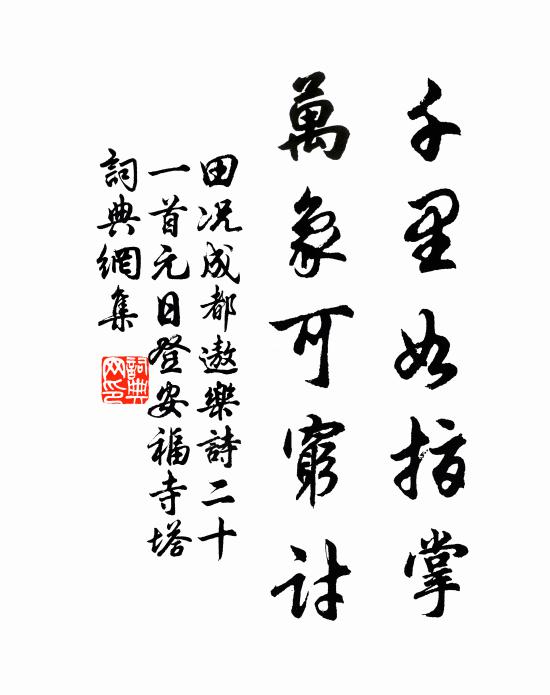 千里如指掌
萬象可窮討
田况成都遨樂詩二十
一首元日登安福寺塔
詞典網集
詞典
网印